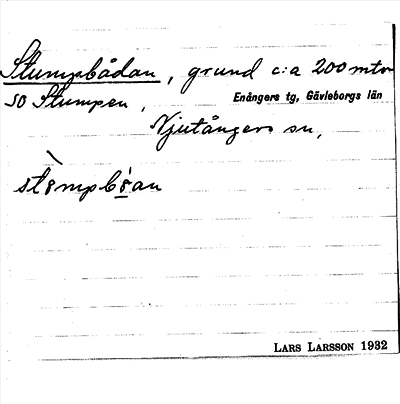 Stumpbådan, grund c:a 200 mtr
SO Stumpen, Enångers tg, Gävleborgs län
Njutångers sn,
Lars Larsson 1932